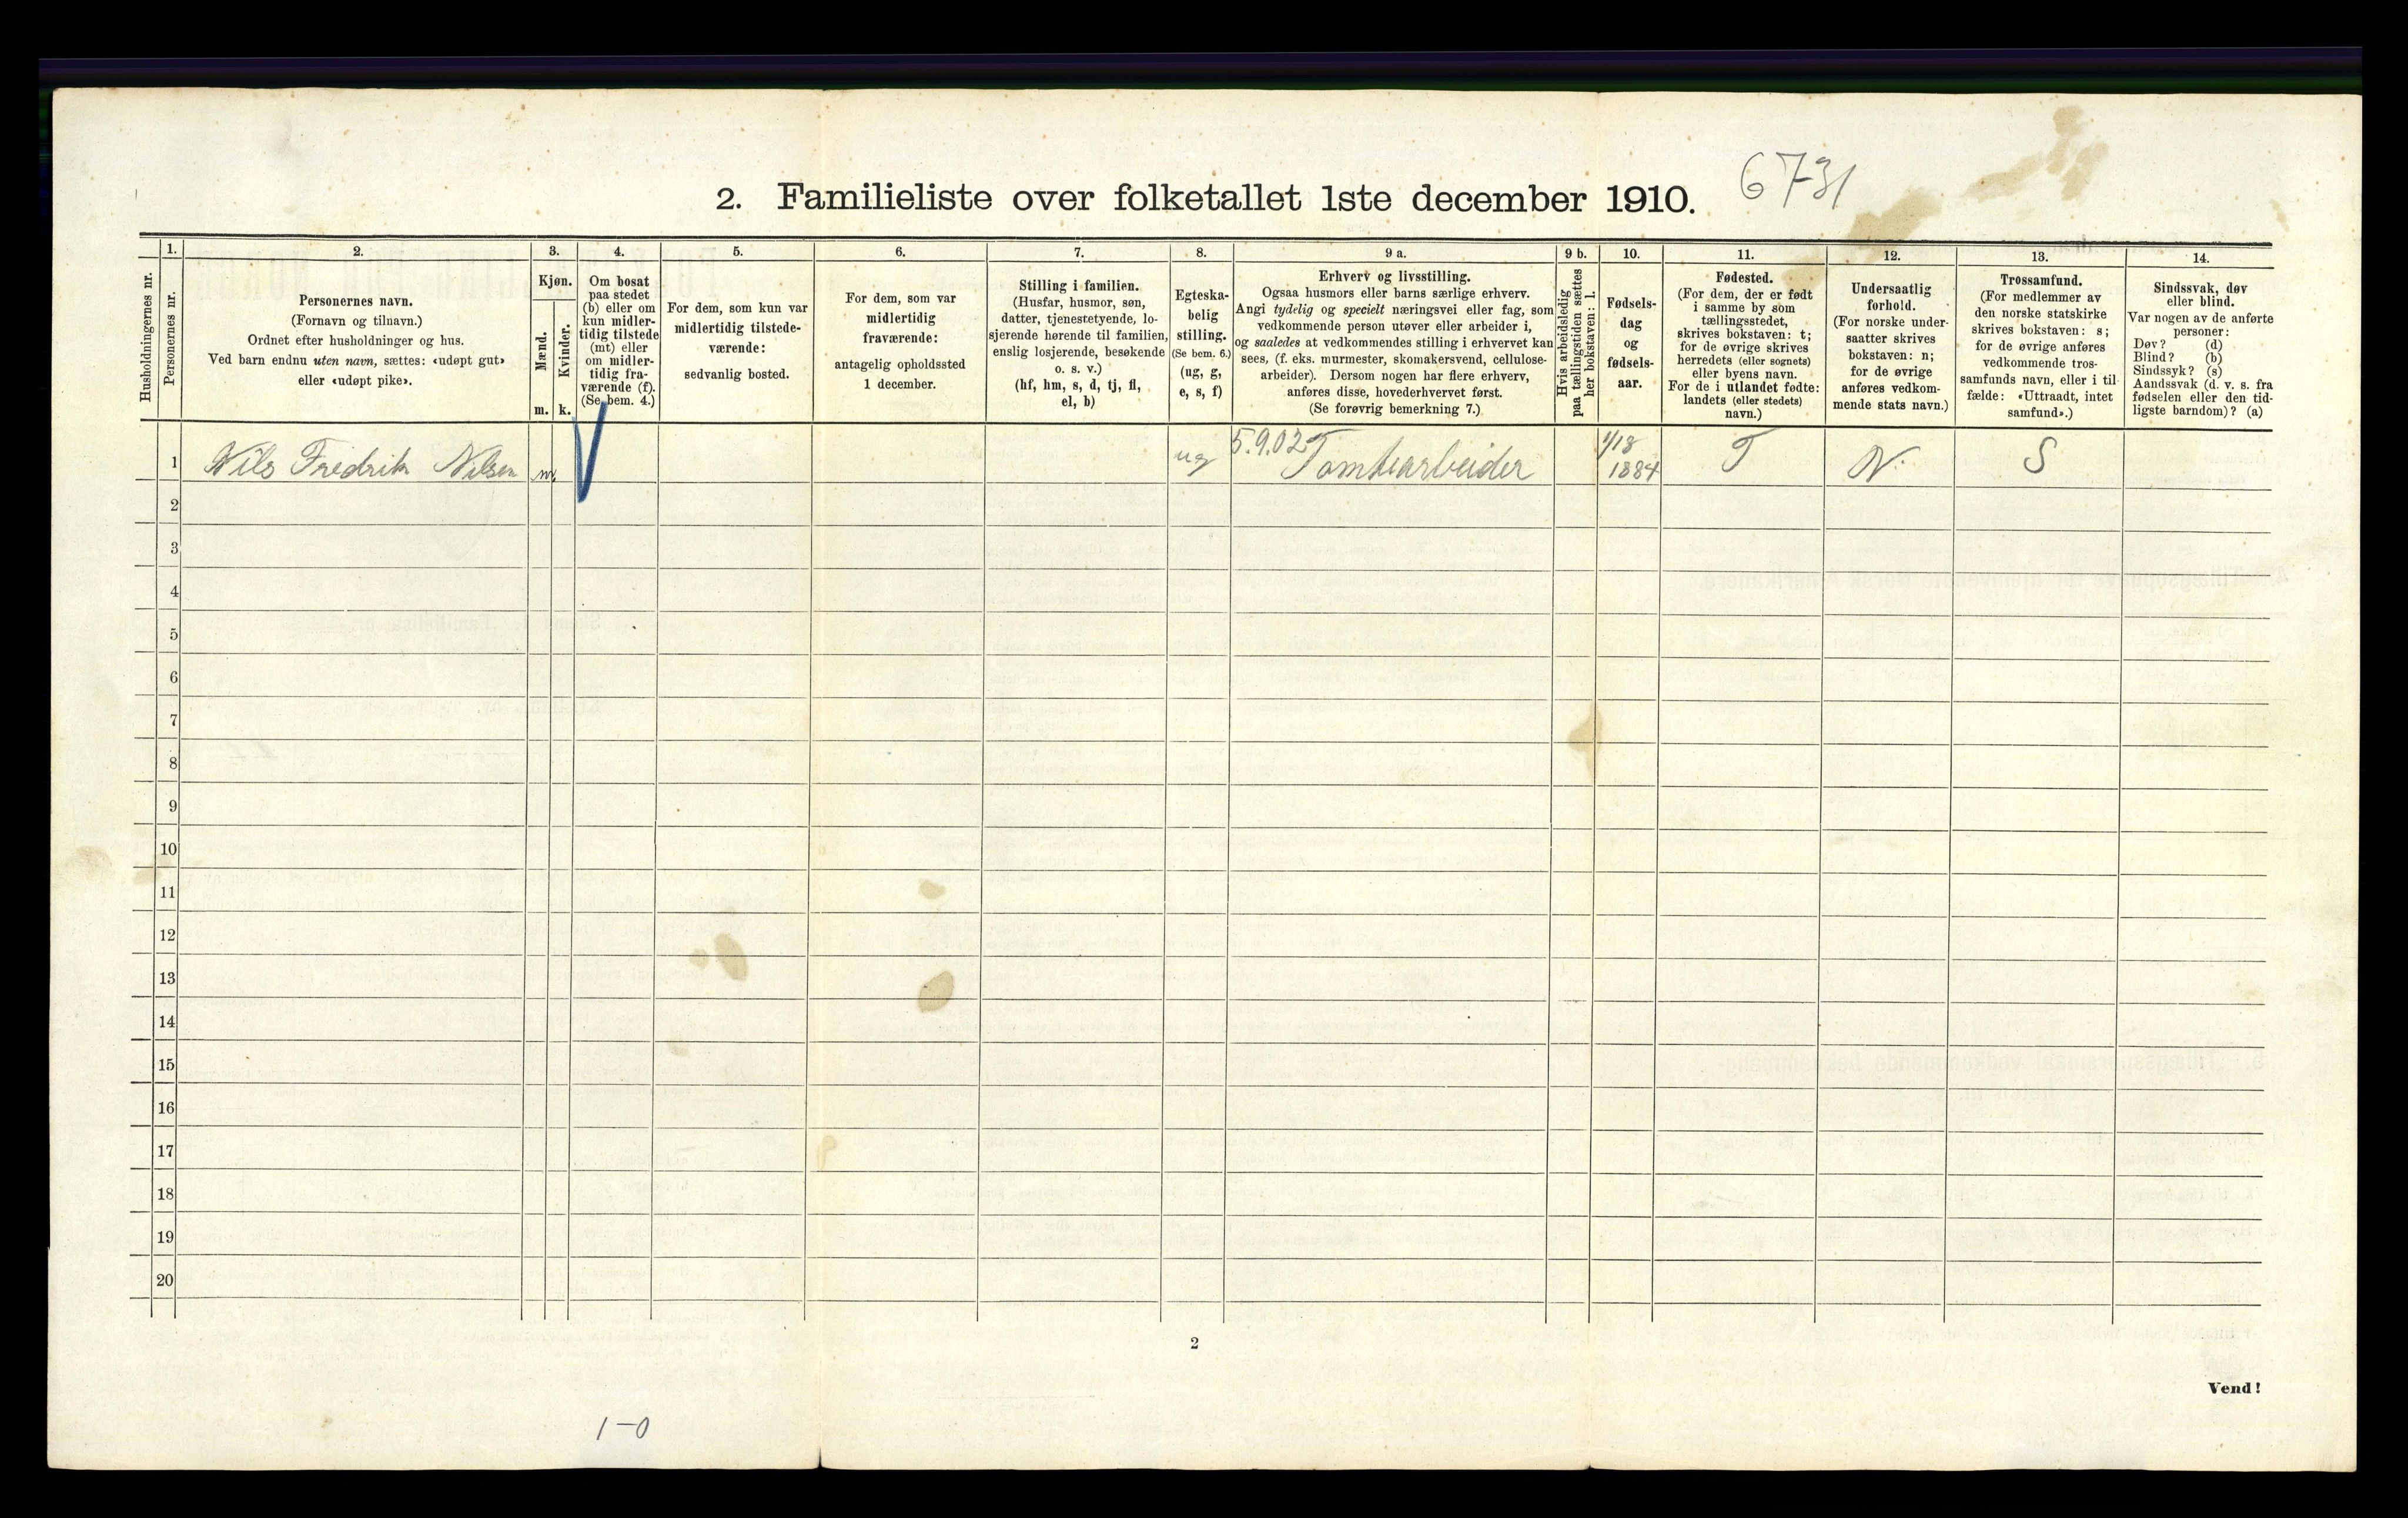 2. Familieliste over folketallet 1ste december 1910. 6731
Husholdningernes nr.
1.
Personernes nr.
2.
Personernes navn.
(Fornavn og tilnavn.)
Ordnet efter husholdninger og hus.
Ved barn endnu uten navn, sættes: «udøpt gut»
eller «udøpt pike».
3.
Kjøn.
Mænd.
m.
Kvinder.
k.
4.
Om bosat
paa stedet
(b) eller om
kun midler-
tidig tilstede
(mt) eller
om midler-
tidig fra-
værende (f).
(Se bem. 4.)
5.
For dem, som kun var
midlertidig tilstede-
værende:
sedvanlig bosted.
6.
For dem, som var
midlertidig
fraværende:
antagelig opholdssted
1 december.
7.
Stilling i familien.
(Husfar, husmor, søn,
datter, tjenestetyende, lo-
sjerende hørende til familien,
enslig losjerende, besøkende
o. s. v.)
(hf, hm, s, d, tj, fl,
el, b)
8.
Egteska-
belig
stilling.
(Se bem. 6.)
(ug, g,
e, s, f)
9 a.
Erhverv og livsstilling.
Ogsaa husmors eller barns særlige erhverv.
Angi tydelig og specielt næringsvei eller fag, som
vedkommende person utøver eller arbeider i,
og saaledes at vedkommendes stilling i erhvervet kan
sees, (f. eks. murmester, skomakersvend, cellulose-
arbeider). Dersom nogen har flere erhverv,
anføres disse, hovederhvervet først.
(Se forøvrig bemerkning 7.)
9 b.
Hvis arbeidsledig
paa tællingstiden sættes
her bokstaven: l.
10.
Fødsels-
dag
og
fødsels-
aar.
11.
Fødested.
(For dem, der er født
i samme by som
tællingsstedet,
skrives bokstaven: t;
for de øvrige skrives
herredets (eller sognets)
eller byens navn.
For de i utlandet fødte:
landets (eller stedets)
navn.)
12.
Undersaatlig
forhold.
(For norske under-
saatter skrives
bokstaven: n;
for de øvrige
anføres vedkom-
mende stats navn.)
13.
Trossamfund.
(For medlemmer av
den norske statskirke
skrives bokstaven: s;
for de øvrige anføres
vedkommende tros-
samfunds navn, eller i til-
fælde: «Uttraadt, intet
samfund».)
14.
Sindssvak, døv
eller blind.
Var nogen av de anførte
personer:
Døv? (d)
Blind? (b)
Sindssyk? (s)
Aandssvak (d. v. s. fra
fødselen eller den tid-
ligste barndom)? (a)
1 Nils Fredrik Nilsen m. ug 5.9.02 Tomtearbeider 1/18 1884 T N. S
2
3
4
5
6
7
8
9
10
11
12
13
14
15
16
17
18
19
20
2
Vend!
1-0